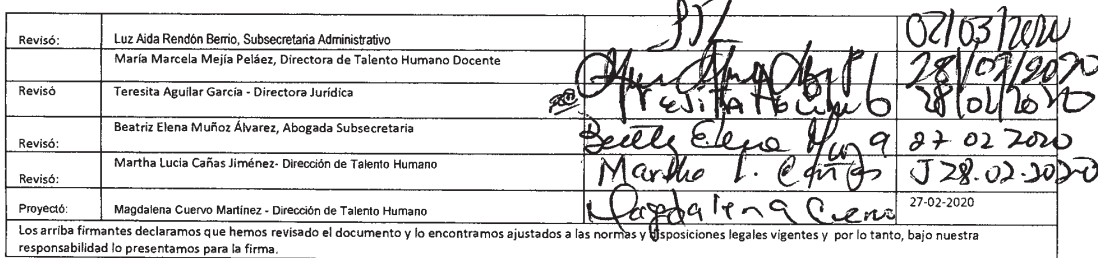 Revisó: Luz Aida Rendón Berrio, Subsecretaria Administrativo 02/03/2020
María Marcela Mejía Peláez, Directora de Talento Humano Docente 28/02/2020
Revisó Teresita Aguilar García - Directora Jurídica 28/02/2020
Revisó: Beatriz Elena Muñoz Álvarez, Abogada Subsecretaria Beatriz Elena Muñoz 27 02 2020
Revisó: Martha Lucia Cañas Jiménez- Dirección de Talento Humano Martha L. Cañas J 28.02-2020
Proyectó: Magdalena Cuervo Martínez - Dirección de Talento Humano Magdalena Cuervo 27-02-2020
Los arriba firmantes declaramos que hemos revisado el documento y lo encontramos ajustados a las normas y disposiciones legales vigentes y por lo tanto, bajo nuestra
responsabilidad lo presentamos para la firma.